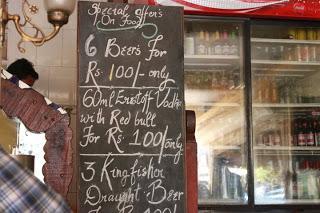 Special offer's
On Food
6 Beers For
Rs. 100/- only
60ml Eristoff Vodka
with Red bull
For Rs. 100/- only
3 Kingfisher
Draught Beer